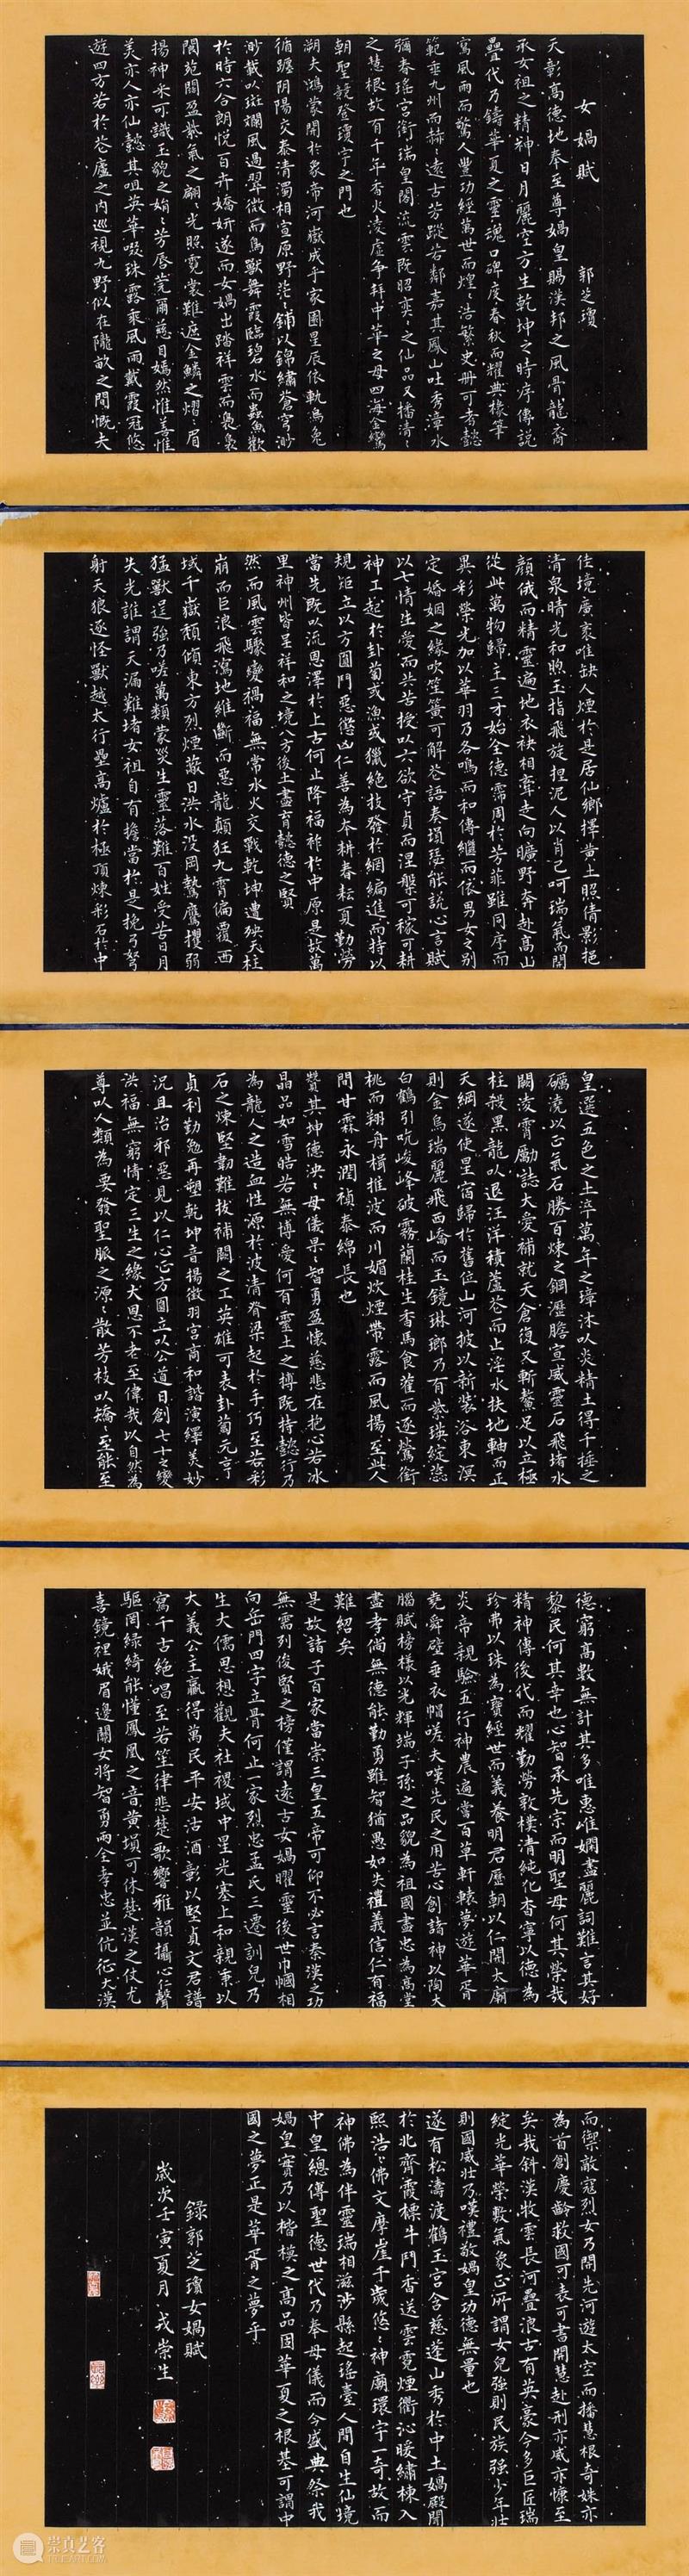 女媧賦 郭芝瓊
天彰高德地奉至尊媧皇賜漢邦之風骨龍裔
承女祖之精神日月麗空方生乾坤之時序傳說
疊代乃鑄華夏之靈魂口碑度春秋而耀典椽筆
寫風雨而驚人豐功經萬世而煌〻浩繁史冊可考懿
範垂九州而赫〻遠古芳蹤若鄰嘉其鳳山吐秀漳水
彌春瑤宮銜瑞皇閣流雲既昭奕〻之仙品又播清〻
之慧根故百千年香火凌虛爭拜中華之母四海金鸞
朝聖競登瓊宇之門也
溯夫鴻蒙開於象帝河嶽成乎家園星辰依軌烏兔
循躔陰陽交泰清濁相宣原野茫〻鋪以錦繡蒼穹渺
渺載以斑斕風過翠微而鳥獸舞霞臨碧水而蟲魚歡
於時六合朗悅百卉嬌妍遂而女媧出踏祥雲而裊裊
閬苑閣盈紫氣之翩〻光照霓裳難遮金鱗之熠〻眉
揚神采可識玉貌之姌〻芳唇莞爾慈目嫣然惟善惟
美亦人亦仙懿其咀英華啜珠露乘風雨戴霞冠悠
遊四方若於茫廬之內巡視九野似在隴畝之間慨夫
佳境廣袤唯缺人煙於是居仙鄉擇黃土照倩影挹
清泉晴光和煦玉指飛旋担泥人以肖己呵瑞氣而開
顏俄而精靈遍地衣袂相牽走向曠野奔赴高山
從此萬物歸主三才始全德霈周於芳菲雖同序而
異彩榮光加以華羽乃各鳴而和傳繼而依男女之別
定婚姻之緣吹笙簧可解卷語奏塤瑟能說心言賦
以七情生愛而共苦授以六欲守貞而涅槃可稼可耕
神工起於卦蔔或漁或獵絕技發於網編進而持以
規矩立以方圓鬥惡懲凶仁善為本耕春耘夏勤勞
當先既以流恩澤於上古何止降福祚於中原是故萬
里神州皆呈祥和之境八方後土盡育懿德之賢
然而風雲驟變禍福無常水火交戰乾坤遭殃天柱
崩而巨浪飛瀉地維斷而惡龍顛狂九霄偏覆西
域千嶽頹傾東方烈煙蔽日洪水沒岡鷙鷹攫弱
猛獸逞強乃嗟萬類蒙災生靈落難百姓受苦日月
失光誰謂天漏難堵女祖自有擔當於是挽弓弩
射天狼逐怪獸越太行壘高爐於極頂煉彩石於中
皇選五色之土淬萬年之璋沐以炎精土得千捶之
礪澆以正氣石勝百煉之鋼瀝膽宣威靈石飛堵水
闕淩霄勵誌大愛補就天倉復又斬鰲足以立極
柱殺黑龍以退汪洋積蘆灰而止淫水扶地軸而正
天綱遂使星宿歸於舊位山河披以新裝浴東溟
則金烏瑞麗飛西嶠而玉鏡琳瑯乃有紫瑛綻蕊
白鶴引吭峻峰破霧蘭桂生香馬食萑而逐鶯銜
桃而翔舟楫推波而川媚炊煙帶露而風揚至此人
間世霖永潤禎泰綿長也
贊其坤德泱〻母儀果〻智勇盈懷慈悲在抱心若冰
晶品如雪皓若無博愛何有靈土之摶既持懿行乃
為龍人之造血性源於波清脊梁起於手巧至若彩
石之煉堅韌難拔補闕之工英雄可表卦蔔元亨
貞利勤勉再塑乾坤音揚徵羽宮商和諧演繹美妙
況且治邪惡見以仁心正方圓立以公道日創七十之變
洪福無窮情定三生之緣大恩不老至偉哉以自然為
尊以人類為要發聖脈之源〻散芳枝以矯〻至能至
德窮高數無計其多唯惠唯嫻盡麗詞難言其好
黎民何其幸也心智承先宗而明聖母何其榮哉
精神傳後代而耀勤勞敦樸清純化杳寧以德為
珍弗以珠為寶經世而義養明君歷朝以仁開太廟
炎帝親驗五行神農遍嘗百草軒轅夢遊華胥
堯舜壁垂衣帽嗟夫嘆先民之用苦心創諸神以陶大
腦賦榜樣以光輝端子孫之品貌為祖國盡忠為高堂
盡孝倘無德能勤勇雖智猶愚如失禮義信仁有福
難紹矣
是故諸子百家當崇三皇五帝可仰不必言秦漢之功
無需列俊賢之榜僅謂遠古女媧曜靈後世巾幗相
向岳門四字立骨何止一家烈忠孟氏三遷訓兒乃
生大儒思想觀夫社稷域中星光塞上和親軍以
大義公主贏得萬民平安沽酒彰以堅貞文君譜
寫千古絕唱至若笙律悲楚歌響雅韻攝心聲
驅罔綠綺能懂鳳凰之音黃塤可休楚漢之仗尤
喜鏡裡娥眉邊關女將智勇兩全孝忠並伉征大漠
而禦敵寇烈女乃開先河遊太空而播慧根奇姝亦
為首創慶齡救國可表可書開慧赴刑亦威亦慷至
矣哉斜漢牧雲長河疊浪古有英豪今多巨匠瑞
綻光華榮敷氣象正所謂女兒強則民族強少年壯
則國威壯乃嘆禮敬媧皇功德無量也
遂有松濤渡鶴王宮含慈蓬山秀於中土媧殿開
於北齊霞標斗鬥杳送雲霓煙衢沁暖繡棟入
熙浩〻佛文摩崖千歲悠〻神廟環宇一奇故而
神佛為伴靈瑞相滋涉縣起瑤臺人間自生仙境
中皇總傳聖德世代乃奉母儀而今盛典祭我
媧皇實乃以楷模之高品固華夏之根基可謂中
國之夢正是華胥之夢乎
錄郭芝瓊女媧賦
歲次壬寅夏月戎崇生
崇真艺客